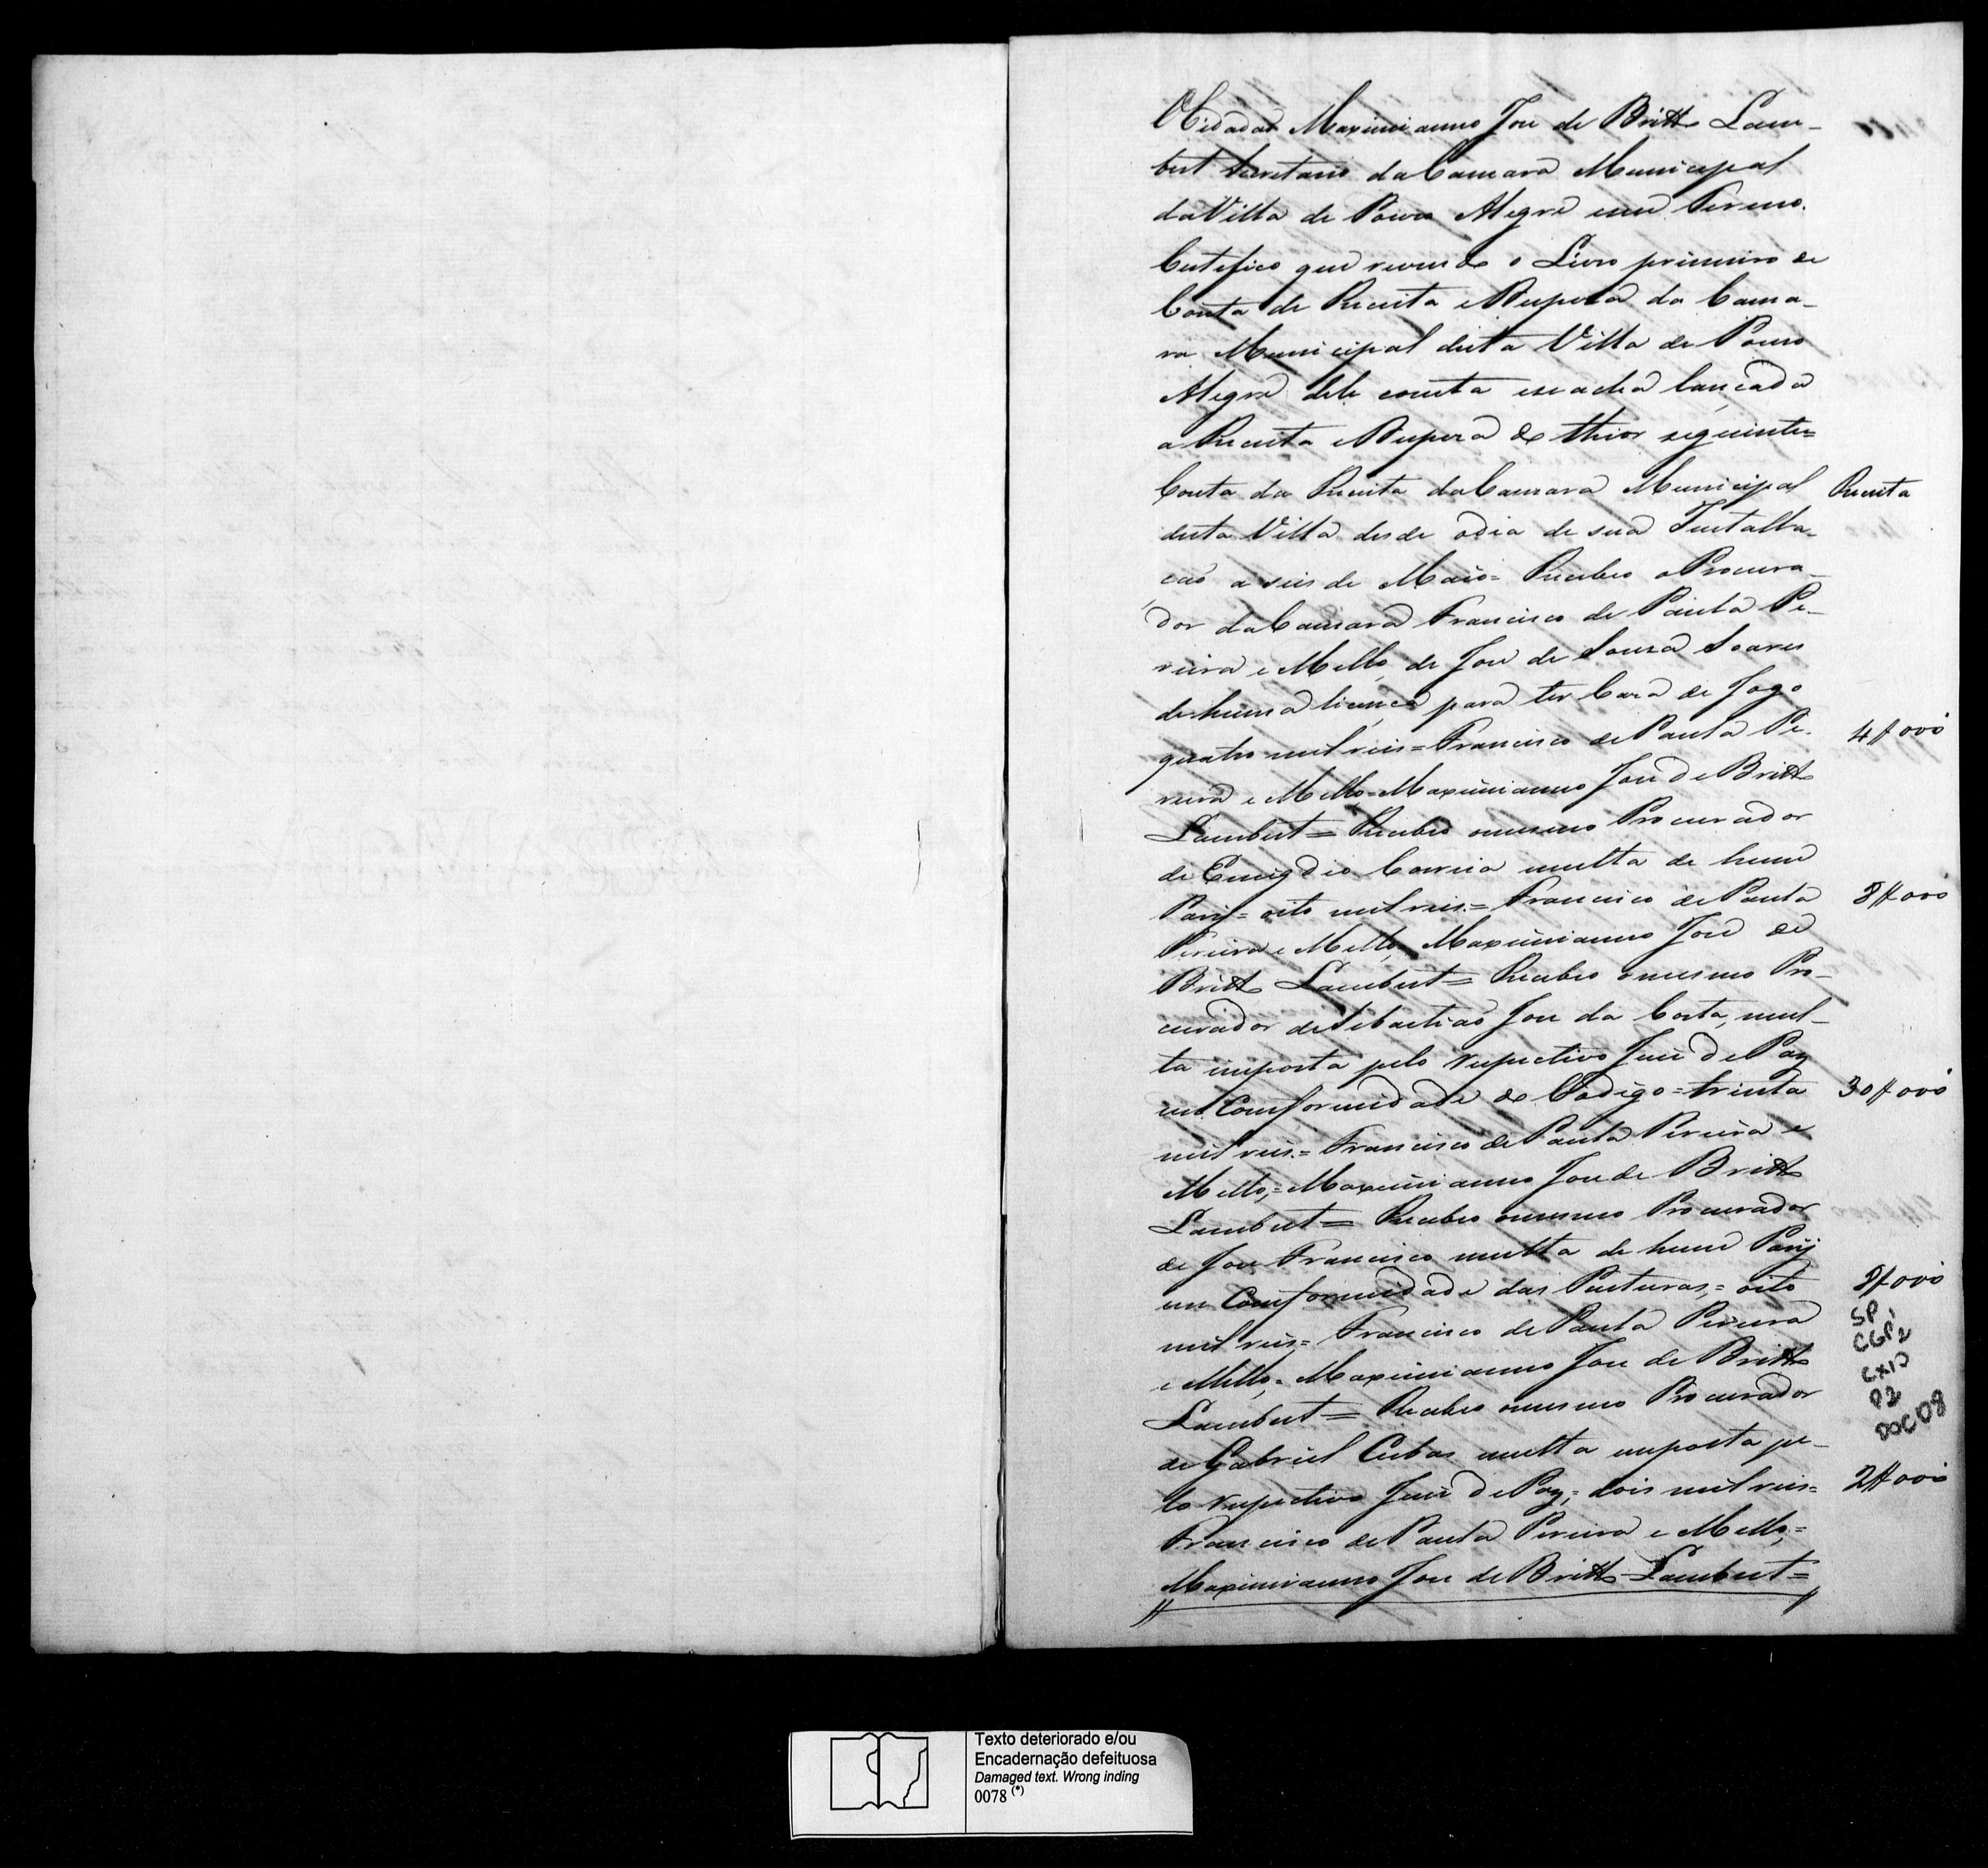 O Cidadão Maximianno Joze de Britto Lam-
bert Secretario da Camara Municipal
da Villa de Pouso Alegre e seu Termo.
Certefico que revendo o Livro primeiro de
Conta de Receita e Despeza da Cama-
ra Municipal desta Villa de Pouso
Alegre delle consta e se acha lançada
a Receita e Despeza do theor seguinte=
Conta da Receita da Camara Municipal
Receita
desta Villa desde o dia de sua Installa-
ção a seis de Maio= Recebeo o Procura-
dor da Camara Francisco de Paula Pe-
reira e Mello, de Joze de Souza Soares
de huma licença para ter Caza de Jogo
quatro mil reis= Francisco de Paula Pe-
4$000
reira e Mello,= Maximianno Joze de Britto
Lambert= Recebeo o mesmo Procurador
de Emigdio Correia multa de hum
Pary= oito mil reis.= Francisco de Paula
8$000
Pereira e Mello, Maximianno Joze de
Britto Lambert= Recebeo o mesmo Pro-
curador de Sebastião Joze da Costa, mul-
ta imposta pelo respectivo Juiz de Paz
em Comformidade do Codigo= trinta
30$000
mil reis.= Francisco de Paula Pereira e
Mello,= Maximianno Joze de Britto
Lambert= Recebeo o mesmo Procurador
de Joze Francisco multa de hum Pary
em Comformidade das Posturas,= oito
8$000
mil reis= Francisco de Paula Pereira
e Mello,= Maximianno Joze de Britto
Lambert= Recebeo o mesmo Procurador
de Gabriel Cubas multa imposta pe-
lo respectivo Juiz de Paz,= dois mil reis=
2$000
Francisco de Paula Pereira e Mello,=
Maximianno Joze de Britto Lambert=
SP1
CGP2
CX10
P2
DOC08
Texto deteriorado e/ou
Encadernação defeituosa
Damaged text. Wrong inding
0078 (*)